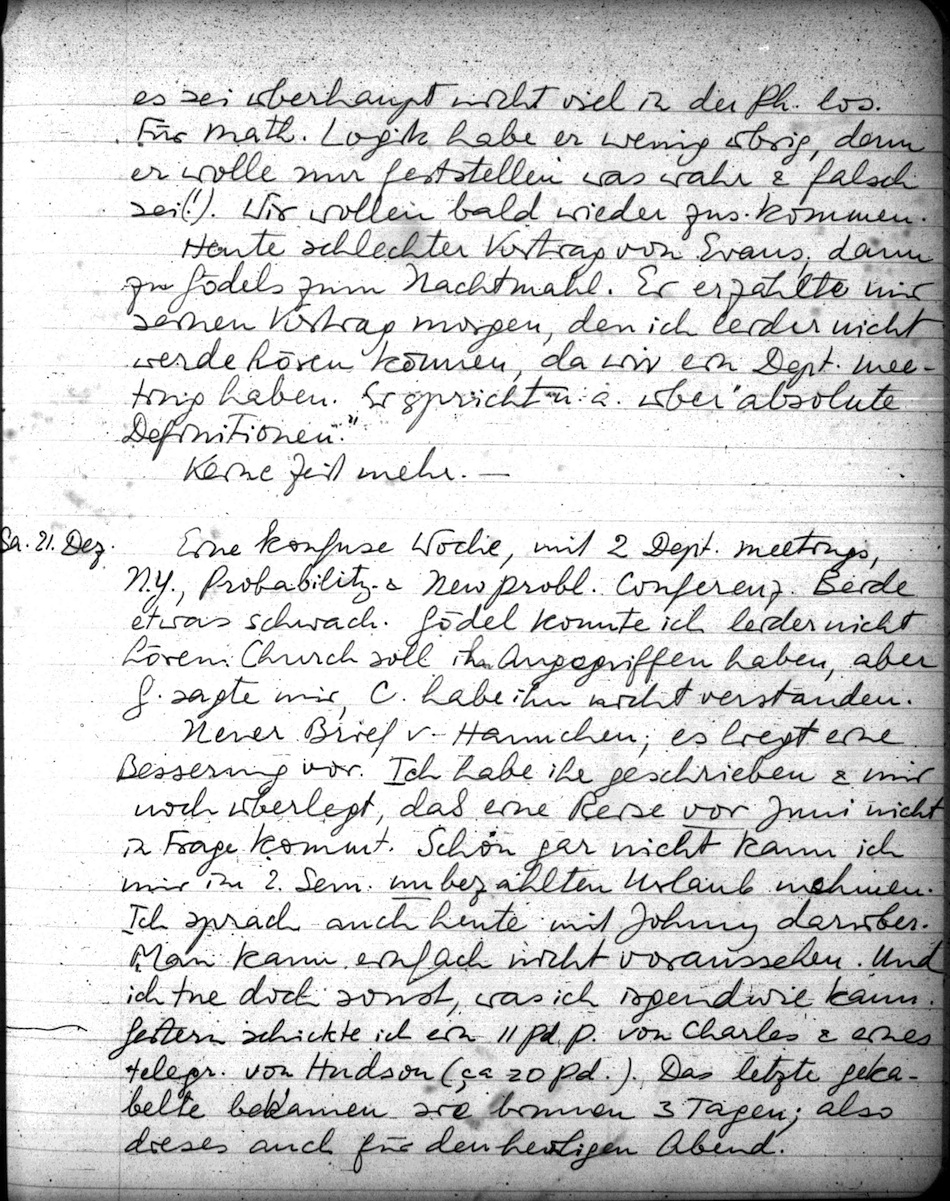 es sei überhaupt nicht viel in der Ph. los.
Für Math. Logik habe er wenig übrig, denn
er wolle nur feststellen was wahr & falsch
sei(!). Wir wollen bald wieder zus. kommen.
Heute schlechter Vortrag von Evans, dann
zu Gödels zum Nachtmahl. Er erzählte mir
seinen Vortrag morgen, den ich leider nicht
werde hören können, da wir ein Dept. mee-
ting haben. Er spricht u. a. über "absolute
Definitionen."
Keine Zeit mehr. —
Sa. 21. Dez. Eine konfuse Woche, mit 2 Dept. meetings,
N.Y., Probability- & New probl. Conferenz. Beide
etwas schwach. Gödel konnte ich leider nicht
hören. Church soll ihn angegriffen haben, aber
G. sagte mir, C. habe ihn nicht verstanden.
Neuer Brief v. Hannchen; es liegt eine
Besserung vor. Ich habe ihr geschrieben & mir
noch überlegt, daß eine Reise vor Juni nicht
in Frage kommt. Schon gar nicht kann ich
mir im 2. Sem. unbezahlten Urlaub nehmen.
Ich sprach auch heute mit Johnny darüber.
Man kann einfach nicht voraussehen. Und
ich tue doch sonst, was ich irgendwie kann.
Gestern schickte ich ein 11 pd. p. von Charles & eines
telegr. von Hudson (ca 20 pd.). Das letzte geka-
belte bekamen sie binnen 3 Tagen; also
dieses auch für den heiligen Abend.